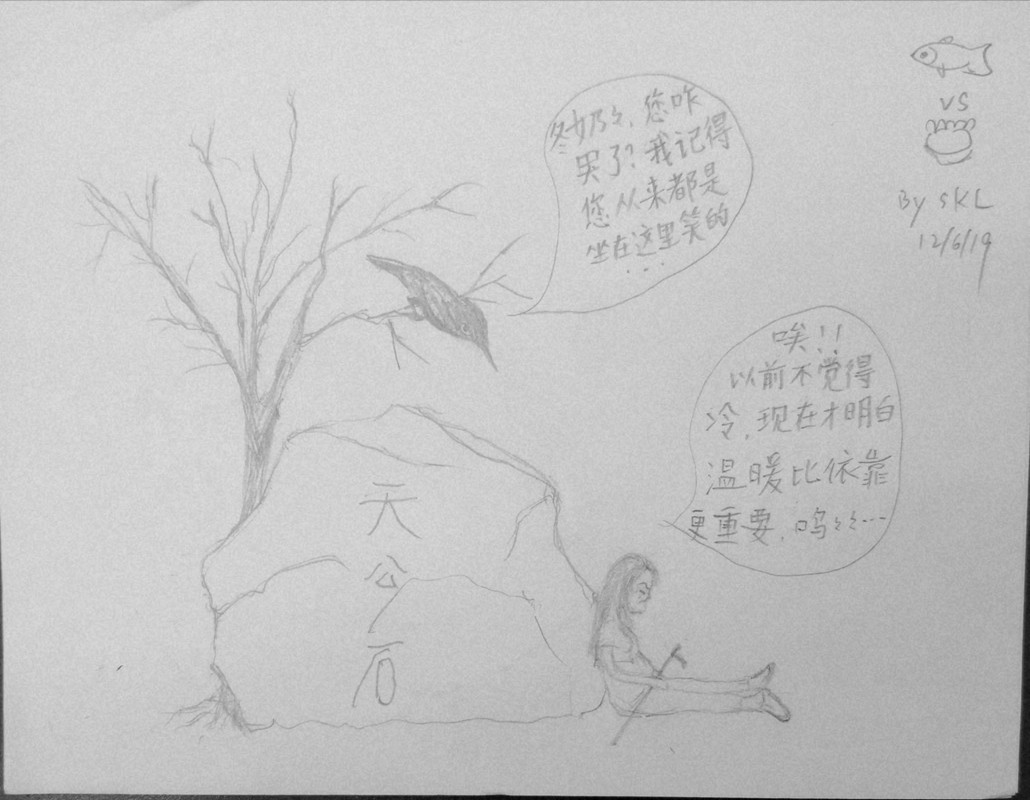 冬奶々，您咋
哭了？我记得
您从来都是
坐在这里笑的
...
唉！！
以前不觉得
冷，现在才明白
温暖比依靠
更重要，呜々々…
天
公
石
VS
By SKL
12/6/19